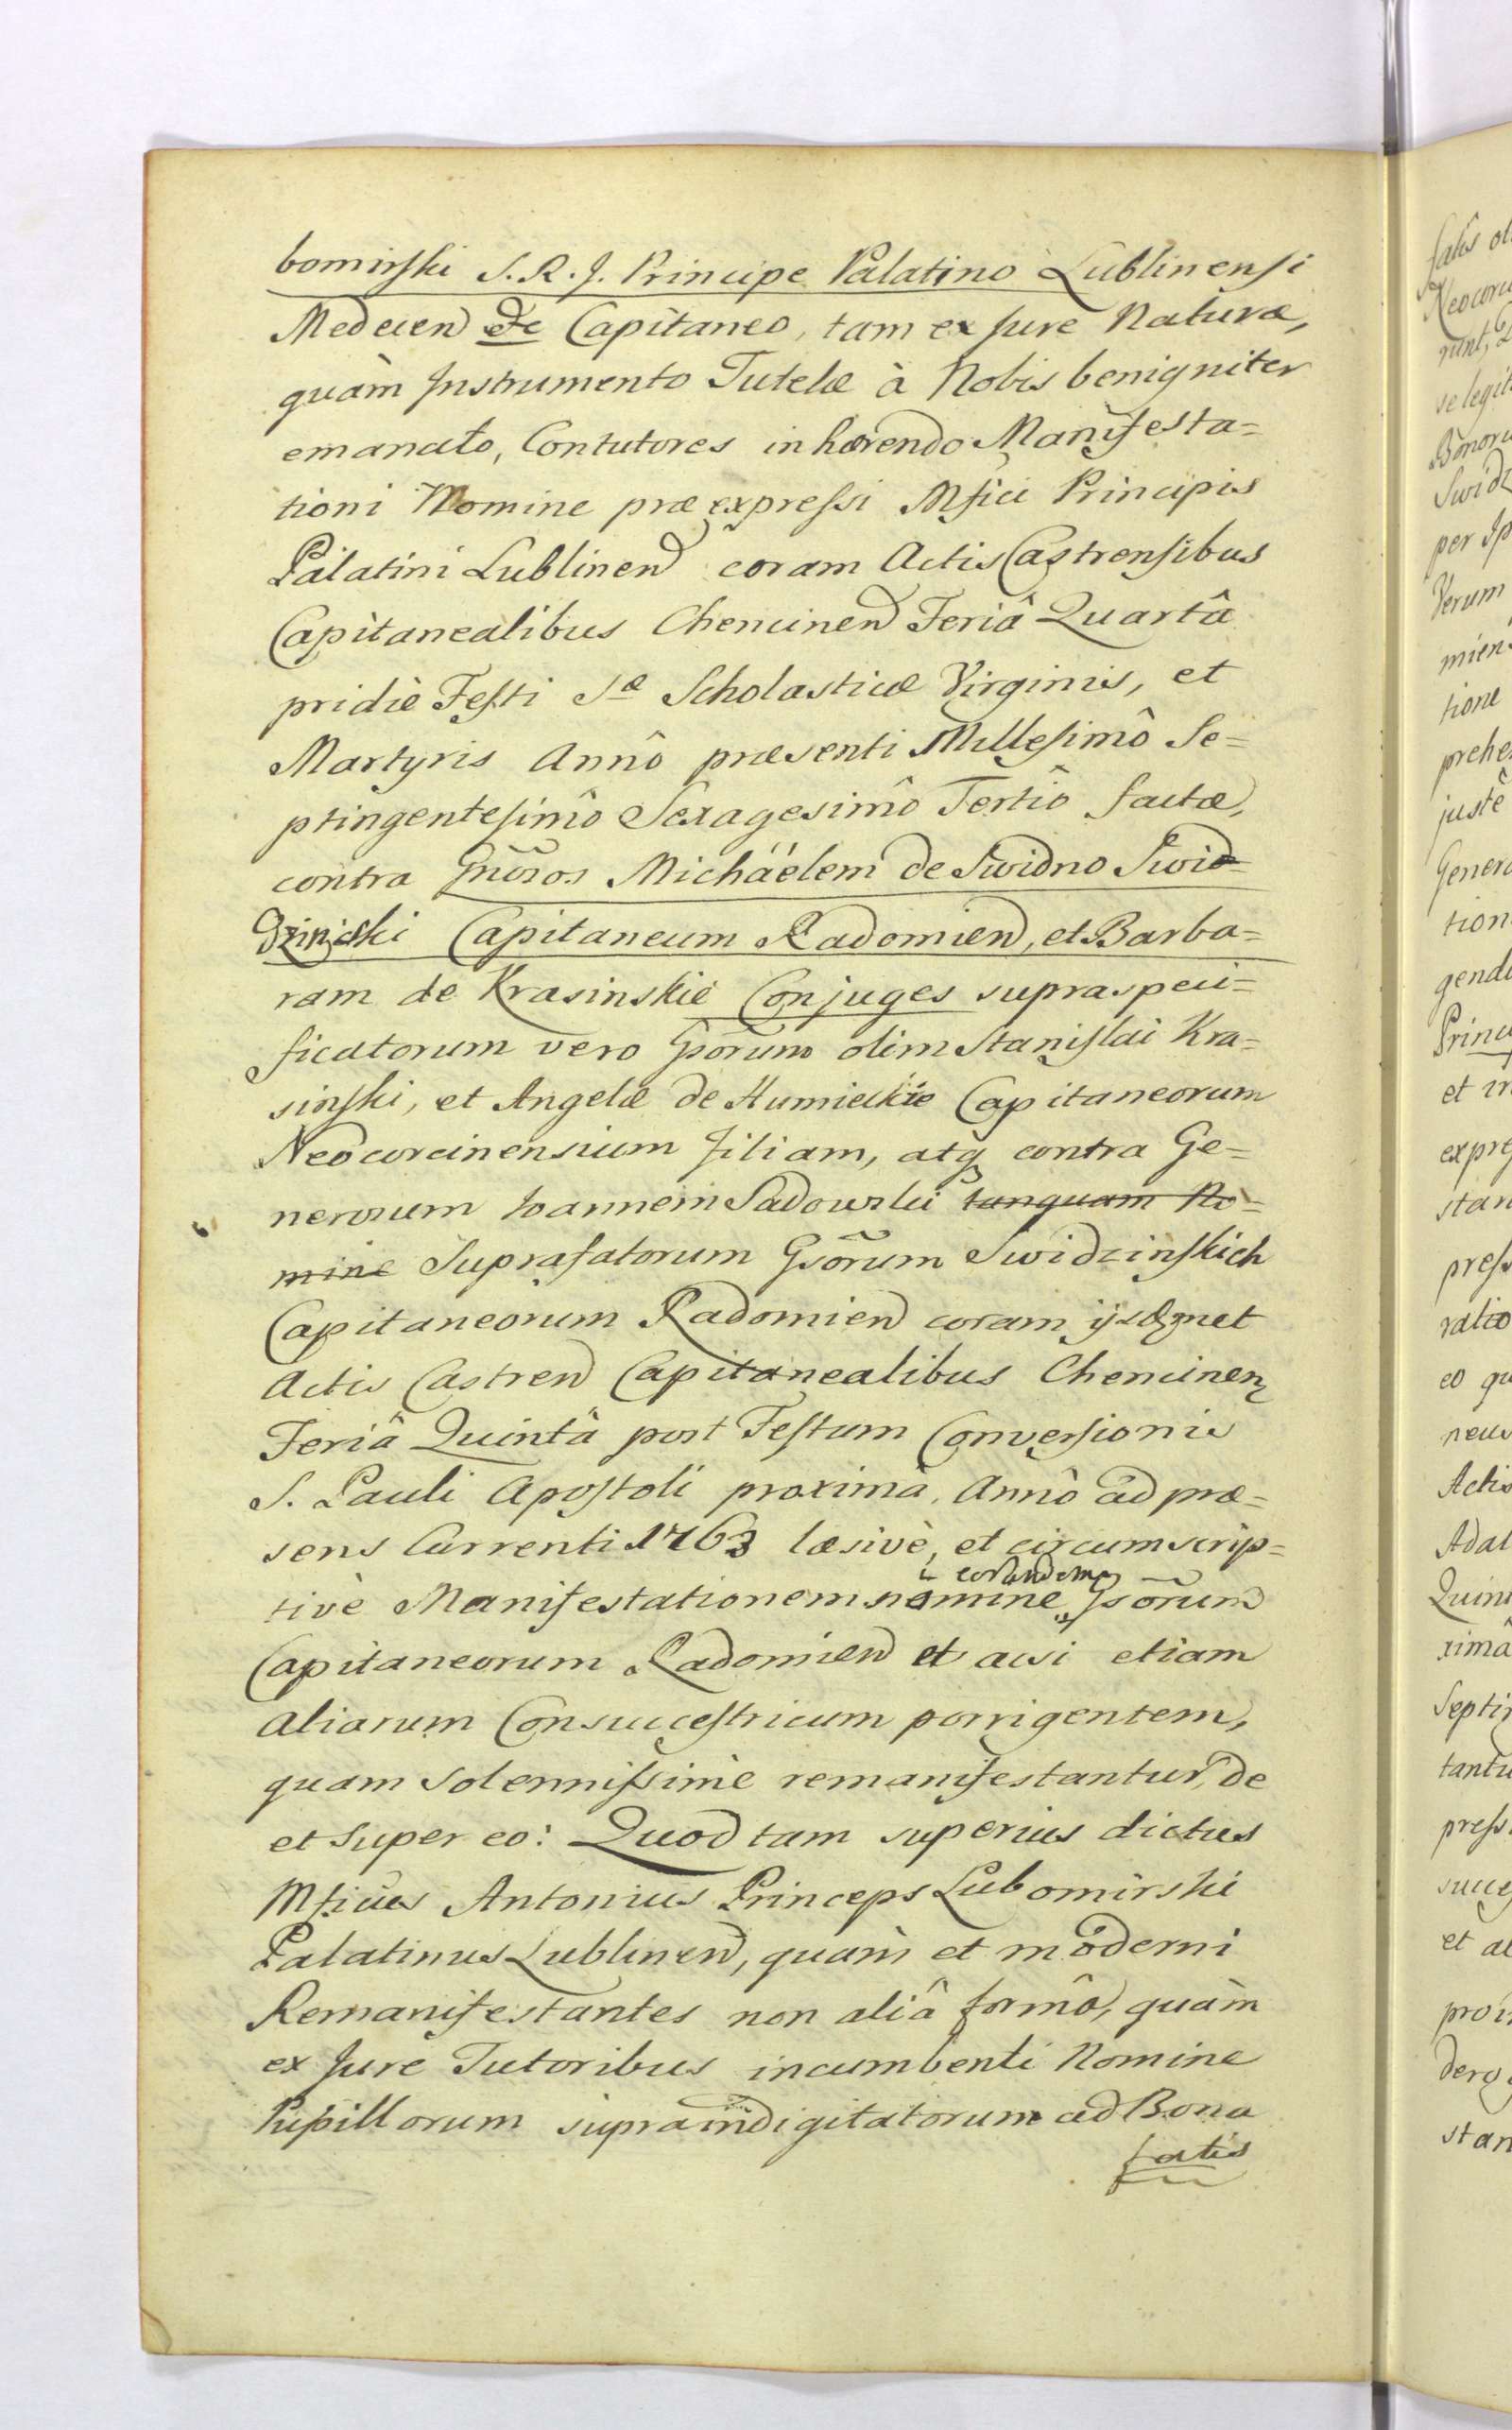 bomirski S. R. J. Principe Palatino Lublinensi
Medecen &c Capitaneo, tam ex Jure Naturæ,
quàm Instrumento Tutelæ à Nobis benigniter
emanato, Contutores inhærendo Manifesta=
tioni Nomine præexpressi Mfici Principis
Palatini Lublinen coram Actis Castrensibus
Capitanealibus Chencinen Feriâ Quartâ
pridiè Festi Sæ Scholasticæ Virginis, et
Martyris Annô præsenti Millesimô Se=
ptingentesimô Sexagesimô Tertiô factæ,
contra Gnosos Michäelem de Swidno Swid=
dzinski Capitaneum Radomien, et Barba=
ram de Krasinskie Conjuges supraspeci=
ficatorum vero Gsorum olim Stanislai Kra=
sinski, et Angelæ de Humieckie Capitaneorum
Neocorcinensium filiam, atq contra Ge=
nerosum Joannem Sadowski tanquam No=
mine Suprafatorum Gsorum Swidzinskich
Capitaneorum Radomien coram ijsdemet
Actis Castren Capitanealibus Chencinen
Feriâ Quintâ post Festum Conversionis
S. Pauli Apostoli proximâ, Annô ad præ=
sens Currenti 1763 læsivè, et circumscrip=
eorundem
tivè Manifestationem nomine Gsorum
Capitaneorum Radomien et acsi etiam
aliarum Consuccestricum porrigentem,
quam solennissimè remanifestantur, de
et super eo: Quod tam superius dictus
Mficus Antonius Princeps Lubomirski
Palatinus Lublinen, quàm et moderni
Remanifestantes non aliâ formâ, quàm
ex Jure Tutoribus incumbenti Nomine
Pupillorum supraindigitatorum ad Bona
fatis
fatis
Neocorci
runt,
se legit
Bonoru
Swid
per Jp
Verum
mien
tione
prehe
justè
Genero
tion
gend
Princ
et in
expre
stan
press
ratio
eo qu
neus
Actis
Adal
Quin
ximâ
Septi
tantu
press
succe
et al
pro
derg
stan